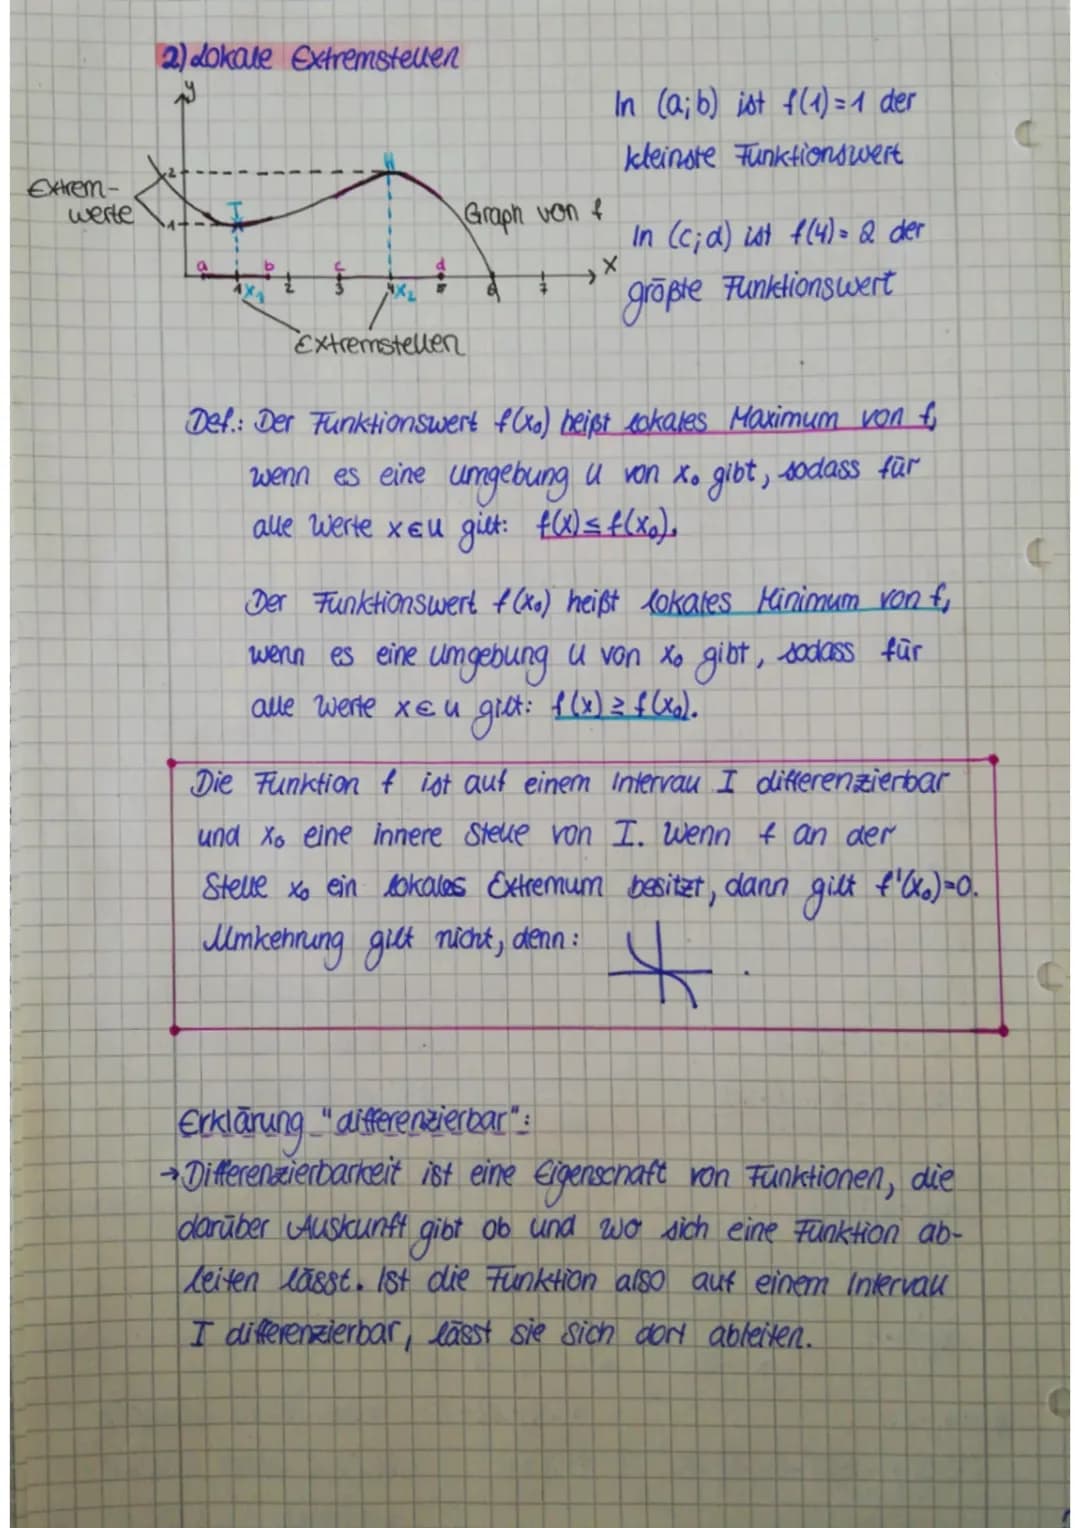 2) Lokale Extremstellen
y
In (a;b) ist f(1)=1 der
kleinste Funktionswert
Extrem-
werte
2
1
T
H
Graph von f
In (c;d) ist f(4)=2 der
größte Funktionswert
a b c d
x
1 x₁ 2 3 4 x₂ 5 6 7
Extremstellen
Def.: Der Funktionswert f(x₀) heißt lokales Maximum von f,
wenn es eine Umgebung U von x₀ gibt, sodass für
alle Werte x∈U gilt: f(x)≤f(x₀).
Der Funktionswert f(x₀) heißt lokales Minimum von f,
wenn es eine Umgebung U von x₀ gibt, sodass für
alle Werte x∈U gilt: f(x)≥f(x₀).
Die Funktion f ist auf einem Intervall I differenzierbar
und x₀ eine innere Stelle von I. Wenn f an der
Stelle x₀ ein lokales Extremum besitzt, dann gilt f'(x₀)=0.
Umkehrung gilt nicht, denn:
Erklärung "differenzierbar":
→Differenzierbarkeit ist eine Eigenschaft von Funktionen, die
darüber Auskunft gibt ob und wo sich eine Funktion ab-
leiten lässt. Ist die Funktion also auf einem Intervall
I differenzierbar, lässt sie sich dort ableiten.